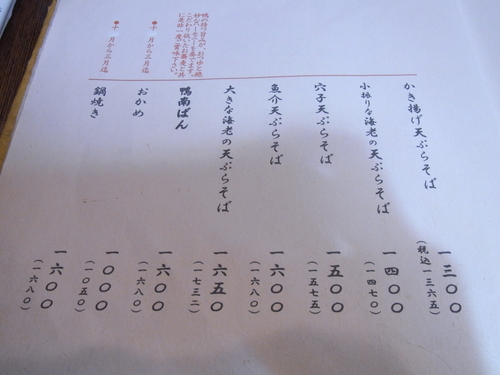 かき揚げ天ぷらそば
一三〇〇
(税込一三六五)
小振りな海老の天ぷらそば
一四〇〇
(一四七〇)
穴子天ぷらそば
一五〇〇
(一五七五)
魚介天ぷらそば
一六〇〇
(一六八〇)
大きな海老の天ぷらそば
一六五〇
(一七三二)
鴨南ばん
一六〇〇
(一六八〇)
おかめ
一〇〇〇
(一〇五〇)
鍋焼き
一六〇〇
(一六八〇)
こだわり抜いたお蕎麦と共
に是非一度ご賞味下さい。
●十一月から三月迄
●十一月から三月迄